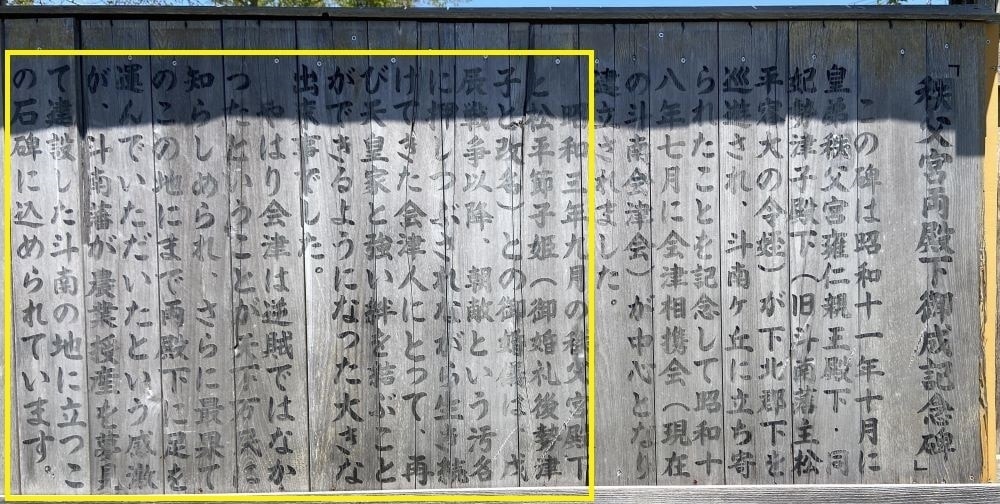 「秩父宮両殿下御成記念碑」
この碑は昭和十一年十月に
皇弟秩父宮雍仁親王殿下・同
妃勢津子殿下(旧斗南藩主松
平容大の令姪)が下北郡下を
巡遊され、斗南ヶ丘に立ち寄
られたことを記念して昭和十
八年七月に会津相携会(現在
の斗南会津会)が中心となり
建立されました。
昭和三年九月の秩父宮殿下
と松平節子姫(御婚礼後勢津
子と改名)との御婚儀は、戊
辰戦争以降、朝敵という汚名
に押しつぶされながら生き続
けてきた会津人にとって、再
び天皇家と強い絆を結ぶこと
ができるようになった大きな
出来事でした。
やはり会津は逆賊ではなか
ったということが天下万民に
知らしめられ、さらに最果て
のこの地にまで両殿下に足を
運んでいただいたという感激
が、斗南藩が農業授産を夢見
て建設した斗南の地に立つこ
の石碑に込められています。